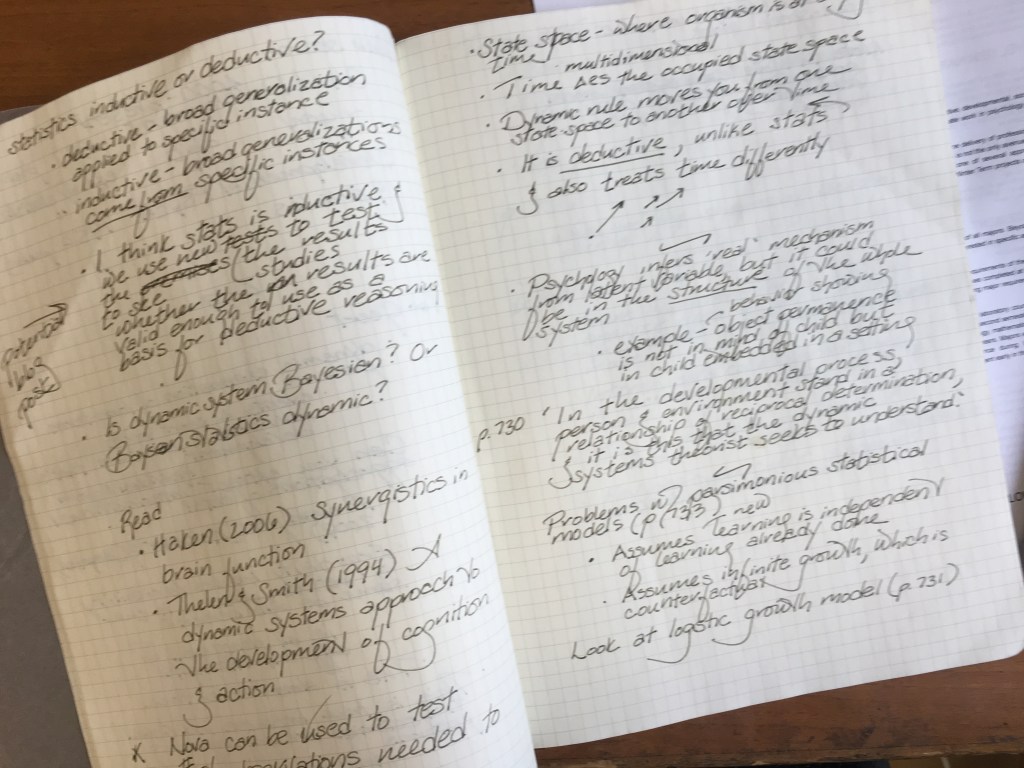 statistics inductive or deductive?
• deductive - broad generalization
applied to specific instance
inductive - broad generalizations
come from specific instances
• I think stats is inductive &
we use new tests to test
the (the results
to see studies
whether the results are
valid enough to use as a
basis for deductive reasoning
potential
blog
post
• Is dynamic system Bayesian? Or
Bayesian statistics dynamic?
Read
• Haken (2006) Synergistics in
brain function
• Thelen & Smith (1994) A
dynamic systems approach to
the development of cognition
& action
X Nova can be used to test
needed to
• State space - where organism is at
time multidimensional
• Time Δes the occupied state space
• Dynamic rule moves you from one
state space to another over time
• It is deductive, unlike stats
& also treats time differently
• Psychology infers "real" mechanism
from latent variable, but it could
be in the structure of the whole
system
• example - behavior showing
object permanence
is not in mind of child but
in child embedded in a setting
p. 730 "In the developmental process,
person & environment stand in a
relationship of reciprocal determination,
& it is this that the dynamic
systems theorist seeks to understand."
Problems w/ parsimonious statistical
models (p. 733)
• Assumes new learning is independent
of learning already done
• Assumes infinite growth, which is
counterfactual
Look at logistic growth model (p. 731)